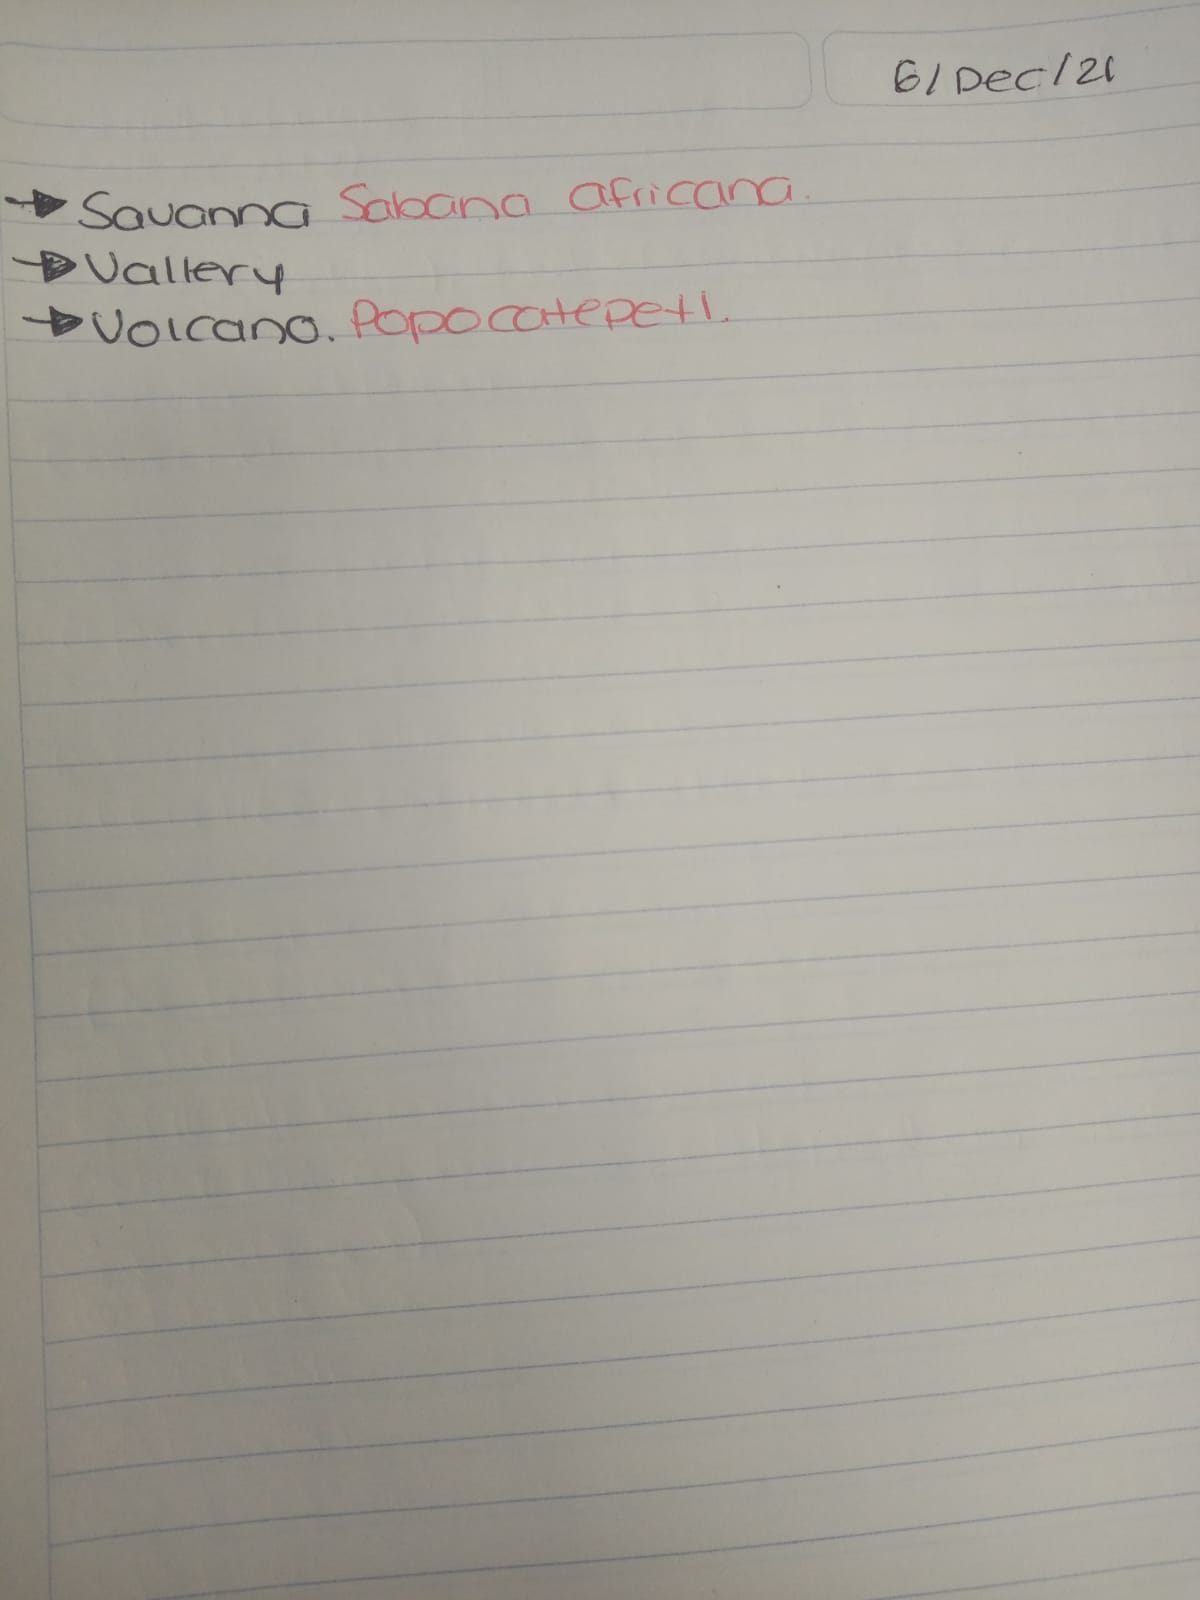 6/Dec/21
→ Savanna Sabana africana.
→ Vallery
→ Volcano. Popocatepetl.